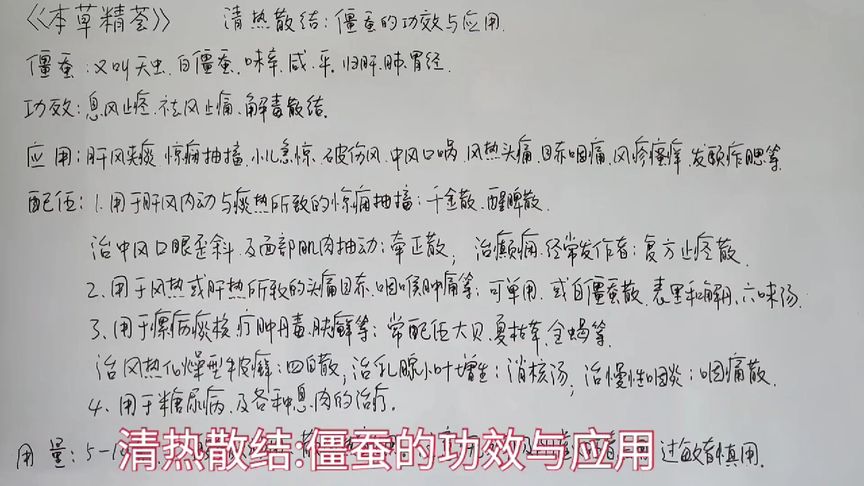 《本草精荟》 清热散结:僵蚕的功效与应用
僵蚕:又叫天虫.白僵蚕.味辛.咸.平.归肝.肺.胃经.
功效:息风止痉.祛风止痛.解毒散结.
应用:肝风夹痰.惊痫抽搐.小儿急惊.破伤风.中风口㖞.风热头痛.目赤咽痛.风疹瘙痒.发颐痄腮等.
配伍:1.用于肝风内动与痰热所致的惊痫抽搐:千金散.醒脾散.
治中风口眼歪斜及面部肌肉抽动:牵正散;治癫痫.经常发作者:复方止痉散.
2.用于风热或肝热所致的头痛目赤.咽喉肿痛等:可单用.或白僵蚕散.表里和解丹.六味汤.
3.用于瘰疬痰核.疔肿丹毒.肤癣等:常配伍大贝.夏枯草.全蝎等.
治风热化燥型牛皮癣:四白散;治乳腺小叶增生:消核汤;治慢性咽炎:咽痛散.
4.用于糖尿病及各种息肉的治疗.
用量:5-1 过敏者慎用.
清热散结:僵蚕的功效与应用